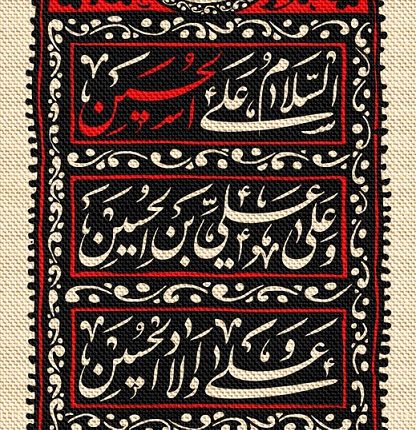 السَّلَامُ عَلَى الحُسَيْن
وَعَلَى عَلِيِّ بْنِ الحُسَيْن
وَعَلَى اَوْلَادِ الحُسَيْن